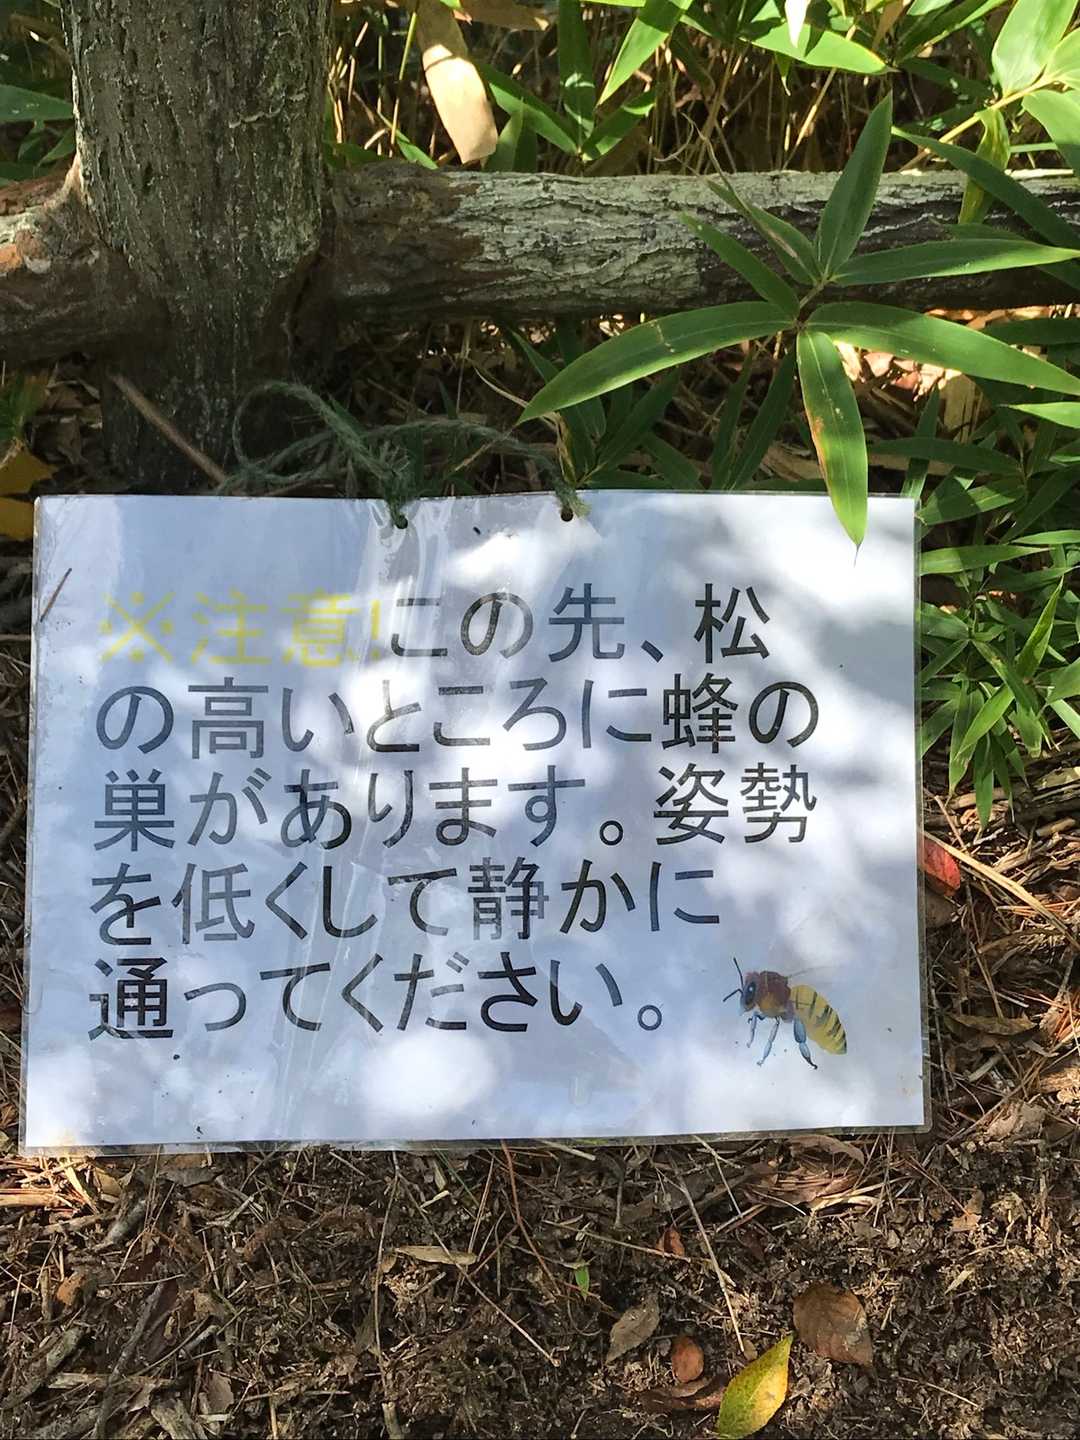 ※注意!この先、松
の高いところに蜂の
巣があります。姿勢
を低くして静かに
通ってください。